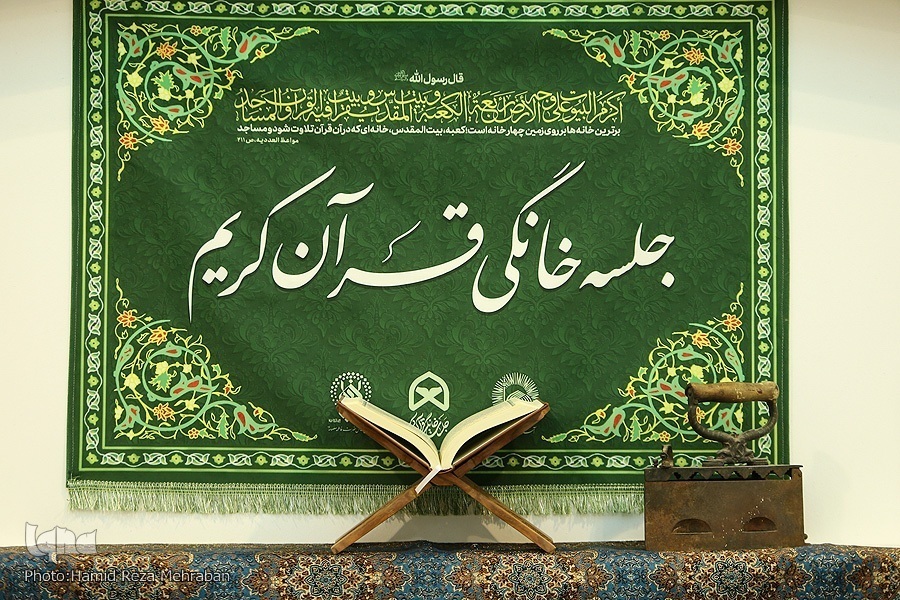 قال رسول الله ﷺ
اکرم البیوت علی وجه الارض اربعة: الکعبة و بیت المقدس و بیت یقرأ فیه القرآن و المساجد
برترین خانه‌ها بر روی زمین چهار خانه است؛ کعبه، بیت المقدس، خانه‌ای که در آن قرآن تلاوت شود و مساجد
مواعظ العددیه، ص ۲۱۱
جلسه خانگی قرآن کریم
iqna
Photo:Hamid Reza Mehraban